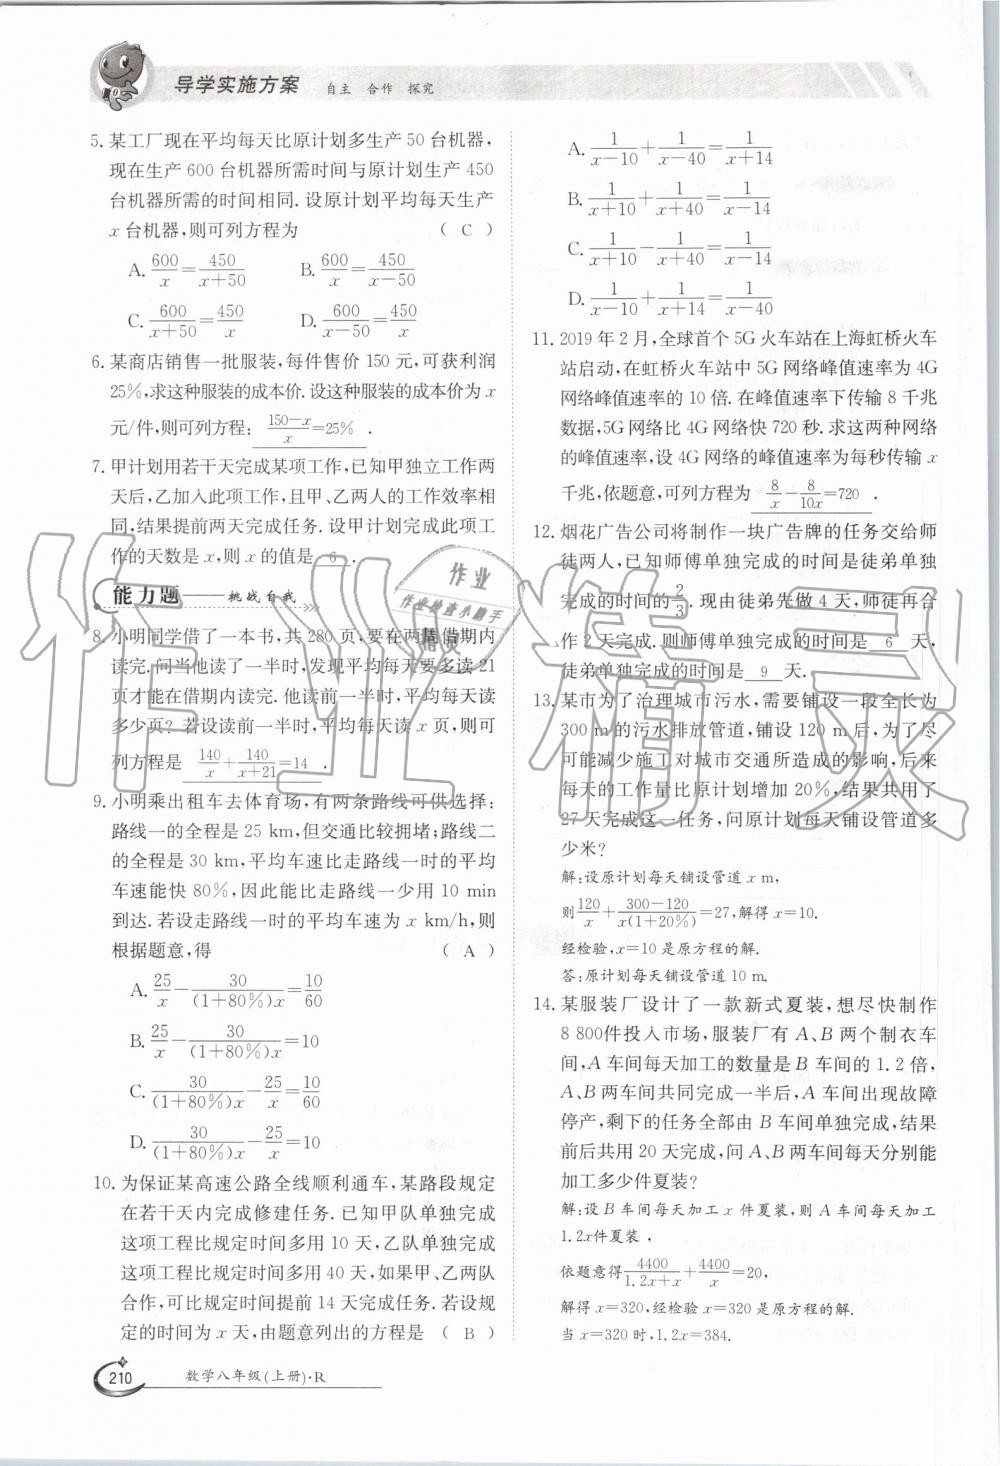 导学实施方案 自主 合作 探究
5. 某工厂现在平均每天比原计划多生产 50 台机器,
现在生产 600 台机器所需时间与原计划生产 450
台机器所需的时间相同. 设原计划平均每天生产
x 台机器,则可列方程为 ( C )
A. 600/x=450/(x+50) B. 600/x=450/(x-50)
C. 600/(x+50)=450/x D. 600/(x-50)=450/x
6. 某商店销售一批服装,每件售价 150 元,可获利润
25%,求这种服装的成本价. 设这种服装的成本价为 x
元/件,则可列方程: (150-x)/x=25% .
7. 甲计划用若干天完成某项工作,已知甲独立工作两
天后,乙加入此项工作,且甲、乙两人的工作效率相
同,结果提前两天完成任务. 设甲计划完成此项工
作的天数是 x,则 x 的值是 6 .
能力题——挑战自我
8. 小明同学借了一本书,共 280 页,要在两周借期内
读完. 问当他读了一半时,发现平均每天要多读 21
页才能在借期内读完. 他读前一半时,平均每天读
多少页? 若设读前一半时,平均每天读 x 页,则可
列方程是 140/x+140/(x+21)=14 .
9. 小明乘出租车去体育场,有两条路线可供选择:
路线一的全程是 25 km,但交通比较拥堵;路线二
的全程是 30 km,平均车速比走路线一时的平均
车速能快 80%,因此能比走路线一少用 10 min
到达. 若设走路线一时的平均车速为 x km/h,则
根据题意,得 ( A )
A. 25/x-30/((1+80%)x)=10/60
B. 25/x-30/((1+80%)x)=10
C. 30/((1+80%)x)-25/x=10/60
D. 30/((1+80%)x)-25/x=10
10. 为保证某高速公路全线顺利通车,某路段规定
在若干天内完成修建任务. 已知甲队单独完成
这项工程比规定时间多用 10 天,乙队单独完成
这项工程比规定时间多用 40 天,如果甲、乙两队
合作,可比规定时间提前 14 天完成任务. 若设规
定的时间为 x 天,由题意列出的方程是 ( B )
A. 1/(x-10)+1/(x-40)=1/(x+14)
B. 1/(x+10)+1/(x+40)=1/(x-14)
C. 1/(x+10)-1/(x+40)=1/(x-14)
D. 1/(x-10)+1/(x+14)=1/(x-40)
11. 2019 年 2 月,全球首个 5G 火车站在上海虹桥火车
站启动,在虹桥火车站中 5G 网络峰值速率为 4G
网络峰值速率的 10 倍. 在峰值速率下传输 8 千兆
数据,5G 网络比 4G 网络快 720 秒. 求这两种网络
的峰值速率,设 4G 网络的峰值速率为每秒传输 x
千兆,依题意,可列方程为 8/x-8/10x=720 .
12. 烟花广告公司将制作一块广告牌的任务交给师
徒两人,已知师傅单独完成的时间是徒弟单独
完成的时间的 2/3. 现由徒弟先做 4 天,师徒再合
作 2 天完成. 则师傅单独完成的时间是 6 天,
徒弟单独完成的时间是 9 天.
13. 某市为了治理城市污水,需要铺设一段全长为
300 m的污水排放管道,铺设 120 m 后,为了尽
可能减少施工对城市交通所造成的影响,后来
每天的工作量比原计划增加 20%,结果共用了
27 天完成这一任务,问原计划每天铺设管道多
少米?
解:设原计划每天铺设管道 x m,
则120/x+(300-120)/(x(1+20%))=27,解得 x=10.
经检验,x=10 是原方程的解.
答:原计划每天铺设管道 10 m.
14. 某服装厂设计了一款新式夏装,想尽快制作
8 800件投入市场,服装厂有 A、B 两个制衣车
间,A 车间每天加工的数量是 B 车间的 1.2 倍,
A、B 两车间共同完成一半后,A 车间出现故障
停产,剩下的任务全部由 B 车间单独完成,结果
前后共用 20 天完成,问 A、B 两车间每天分别能
加工多少件夏装?
解:设 B 车间每天加工 x 件夏装,则 A 车间每天加工
1.2x件夏装,
依题意得4400/(1.2x+x)+4400/x=20,
解得 x=320,经检验 x=320 是原方程的解.
当 x=320 时,1.2x=384.
210 数学八年级(上册)·R
作业精灵
作业
作业检查小助手
精灵